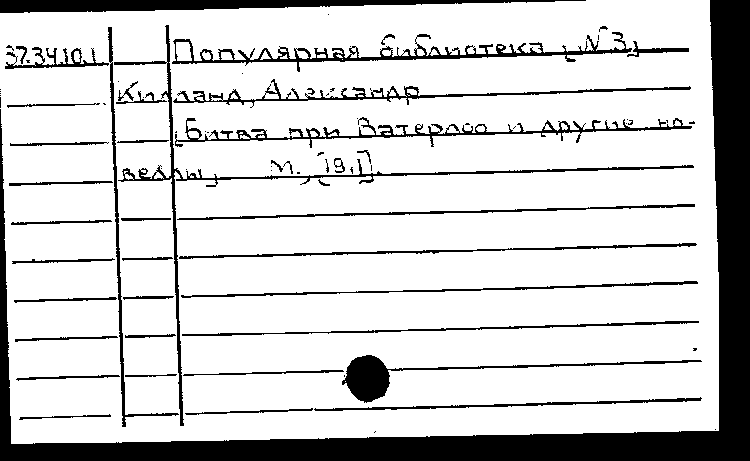 37.34.10.1 Популярная библиотека [N 3]
Килланд, Александр
[Битва при Ватерлоо и другие но-
веллы] М., [19,1].